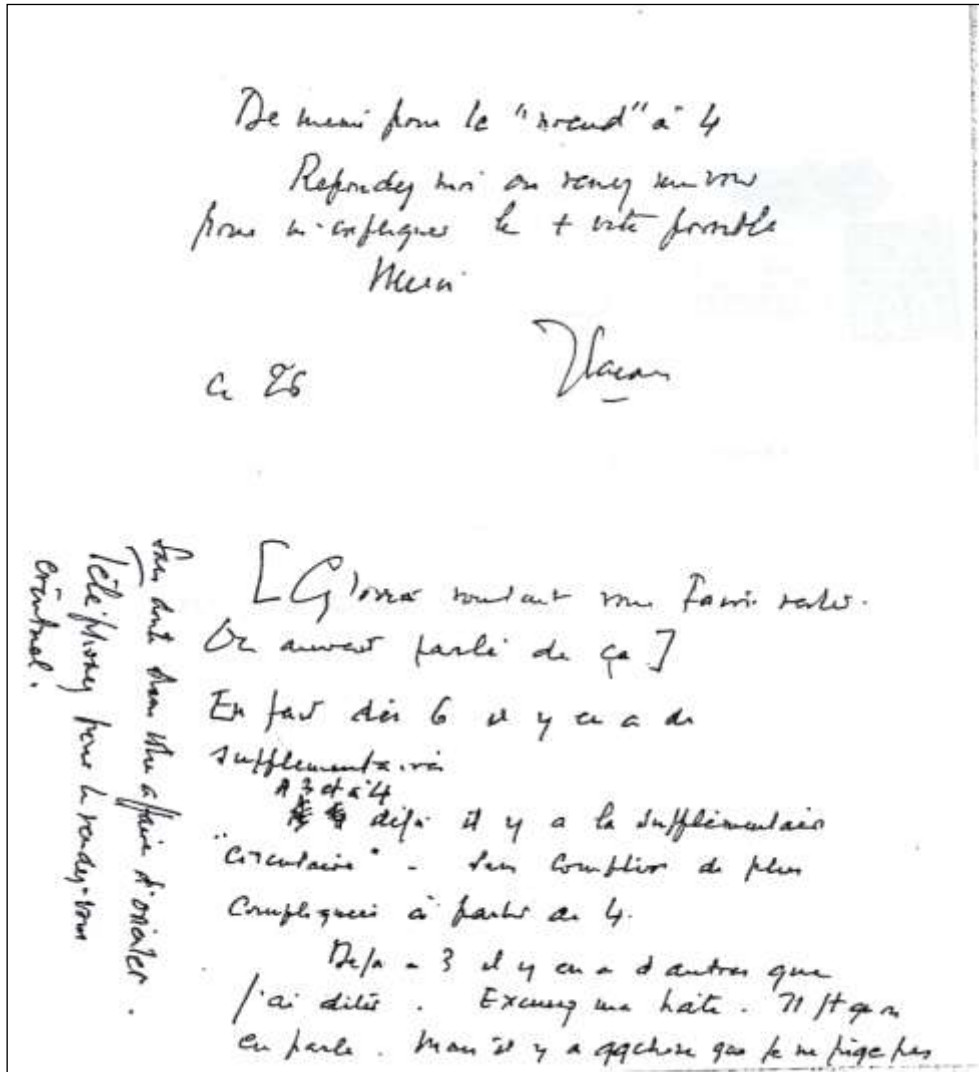 De meme pour le "noeud" à 4
Repondez moi ou venez me voir
pour m'expliquer le + vite possible
Merci
Ce 26
JLacan
[ vous
On auvait parlé de ça ]
En fait dès 6 il y en a de
supplementaires
A 3 et à 4
déjà il y a la supplémentaire
"circulaire" - sans compter de plus
compliquees à partir de 4.
Deja a 3 il y en a d'autres que
j'ai dites. Excusez ma hâte. Il ft qu'on
en parle. Mais il y a qqchose que je ne pige pas
Sans doute affaire d'orienter.
Téléphonez pour le rendez-vous
éventuel.